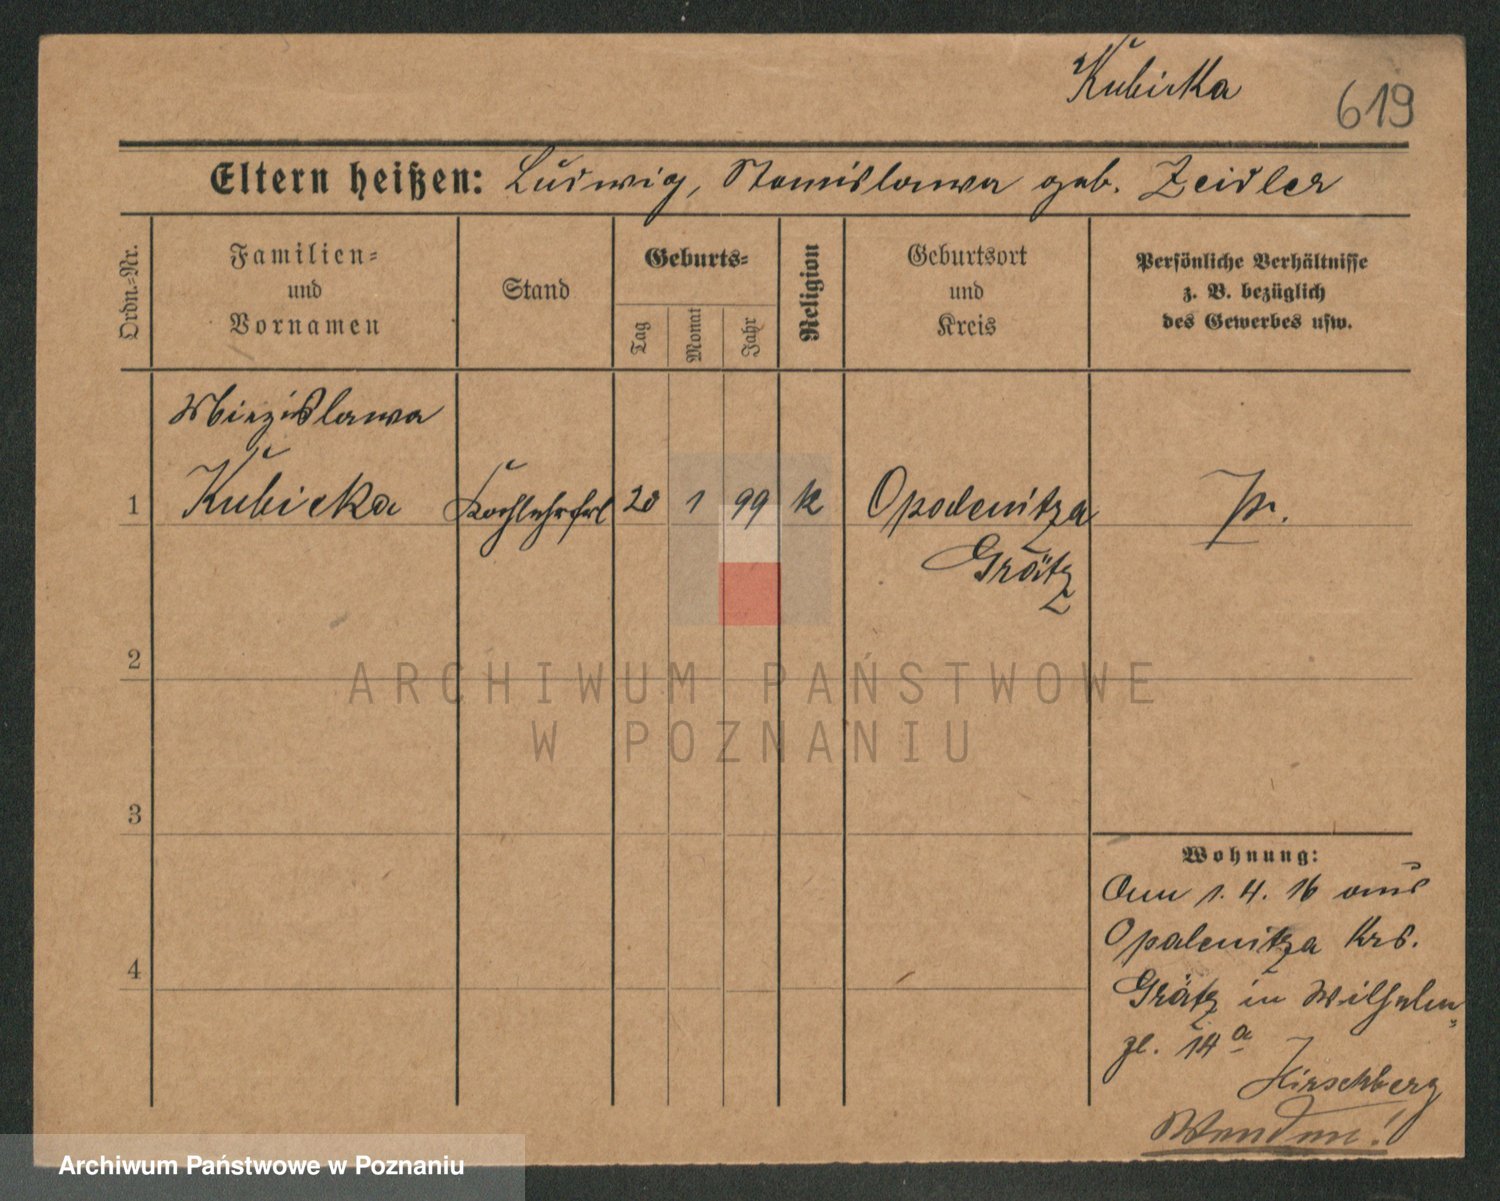 Kubicka
619
Eltern heißen: Ludwig, Stanislawa geb. Zeidler
Ordn.-Nr.
Familien-
und
Vornamen
Stand
Geburts-
Tag
Monat
Jahr
Religion
Geburtsort
und
Kreis
Persönliche Verhältnisse
z. B. bezüglich
des Gewerbes usw.
Miezislawa
1 Kubicka Kochlehrfrl 20 1 99 k Opalenitza Pr.
Grätz
2
3
4
Wohnung:
Am 1. 4. 16 aus
Opalenitza Krs.
Grätz in Wilhelm-
pl. 14a
Hirschberg
Wenden!
ARCHIWUM PAŃSTWOWE
W POZNANIU
Archiwum Państwowe w Poznaniu